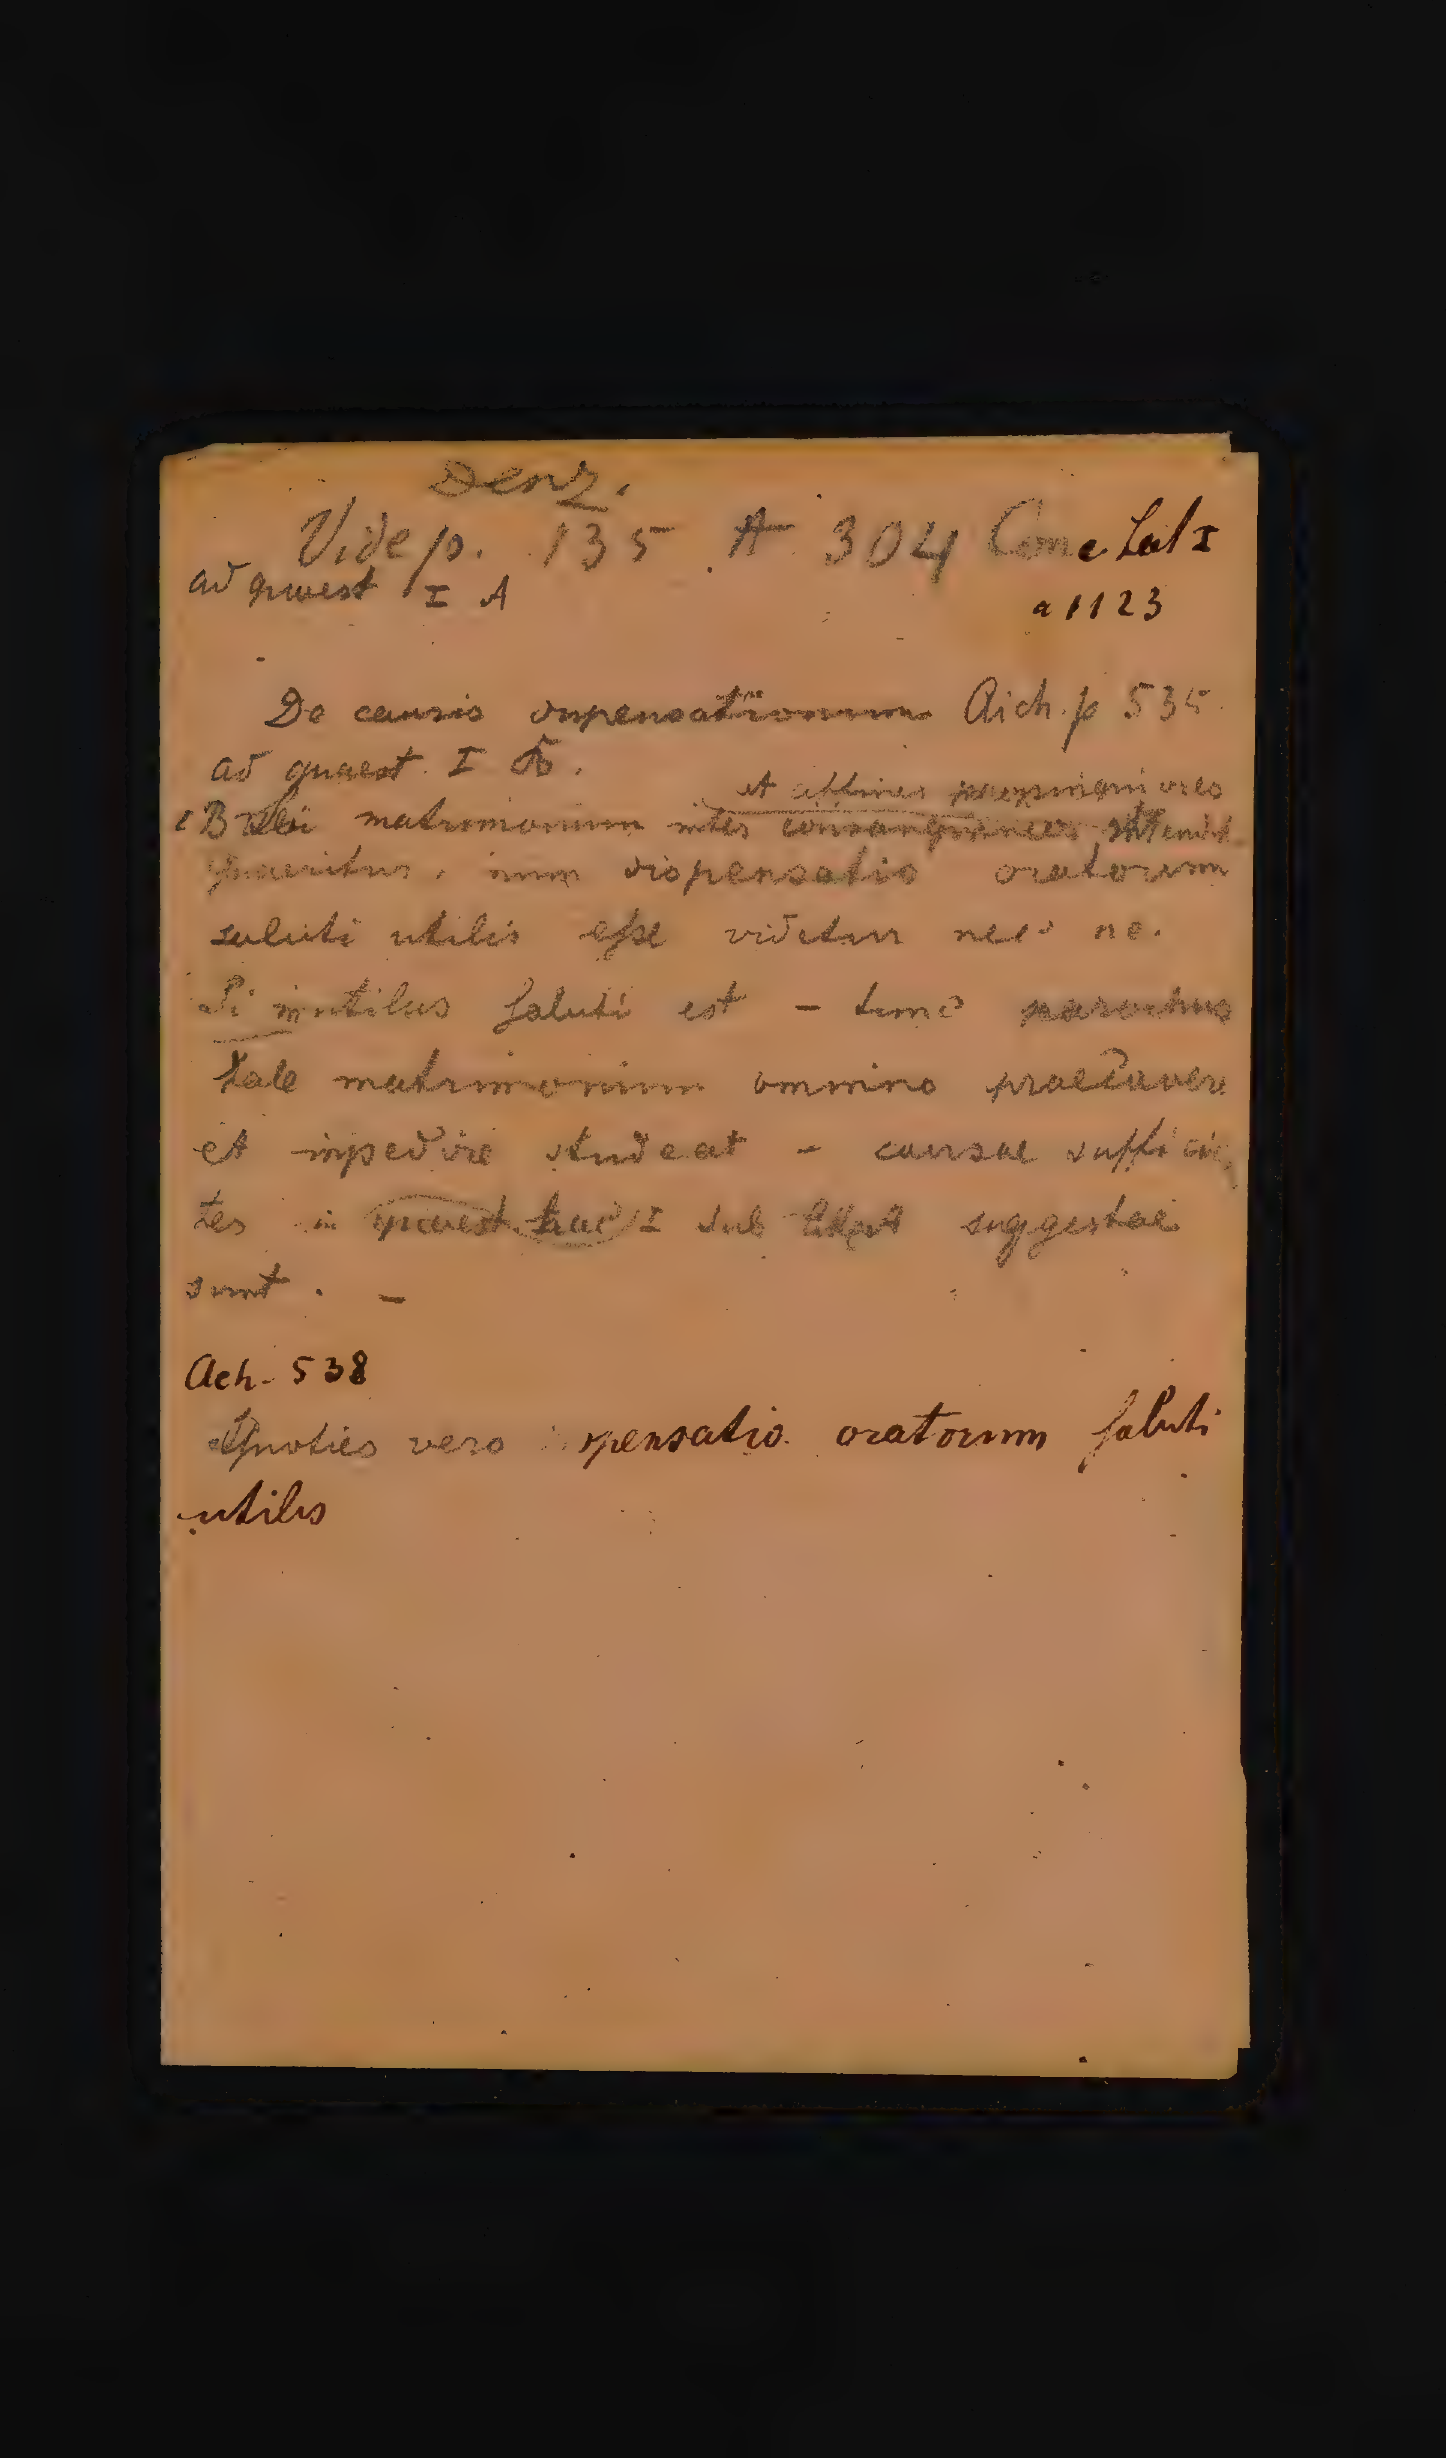 Denz.
Vide p. 135 A 304 Conc Lat I
ad quaest I A a 1123
De causis dispensationum Aich. p 535
ad quaest. I B.
et affines propinquiores
B Ubi matrimonium inter consanguineos
quaeritur, num dispensatio oratorum
saluti utilis esse videtur nec ne.
Si inutilis saluti est - tunc parochus
tale matrimonium omnino praecavere
et impedire studeat - causae sufficien
tes in quaest. hac I sub suggestae
sunt. -
Ach. 538
Quoties vero pensatio oratorum saluti
utilis